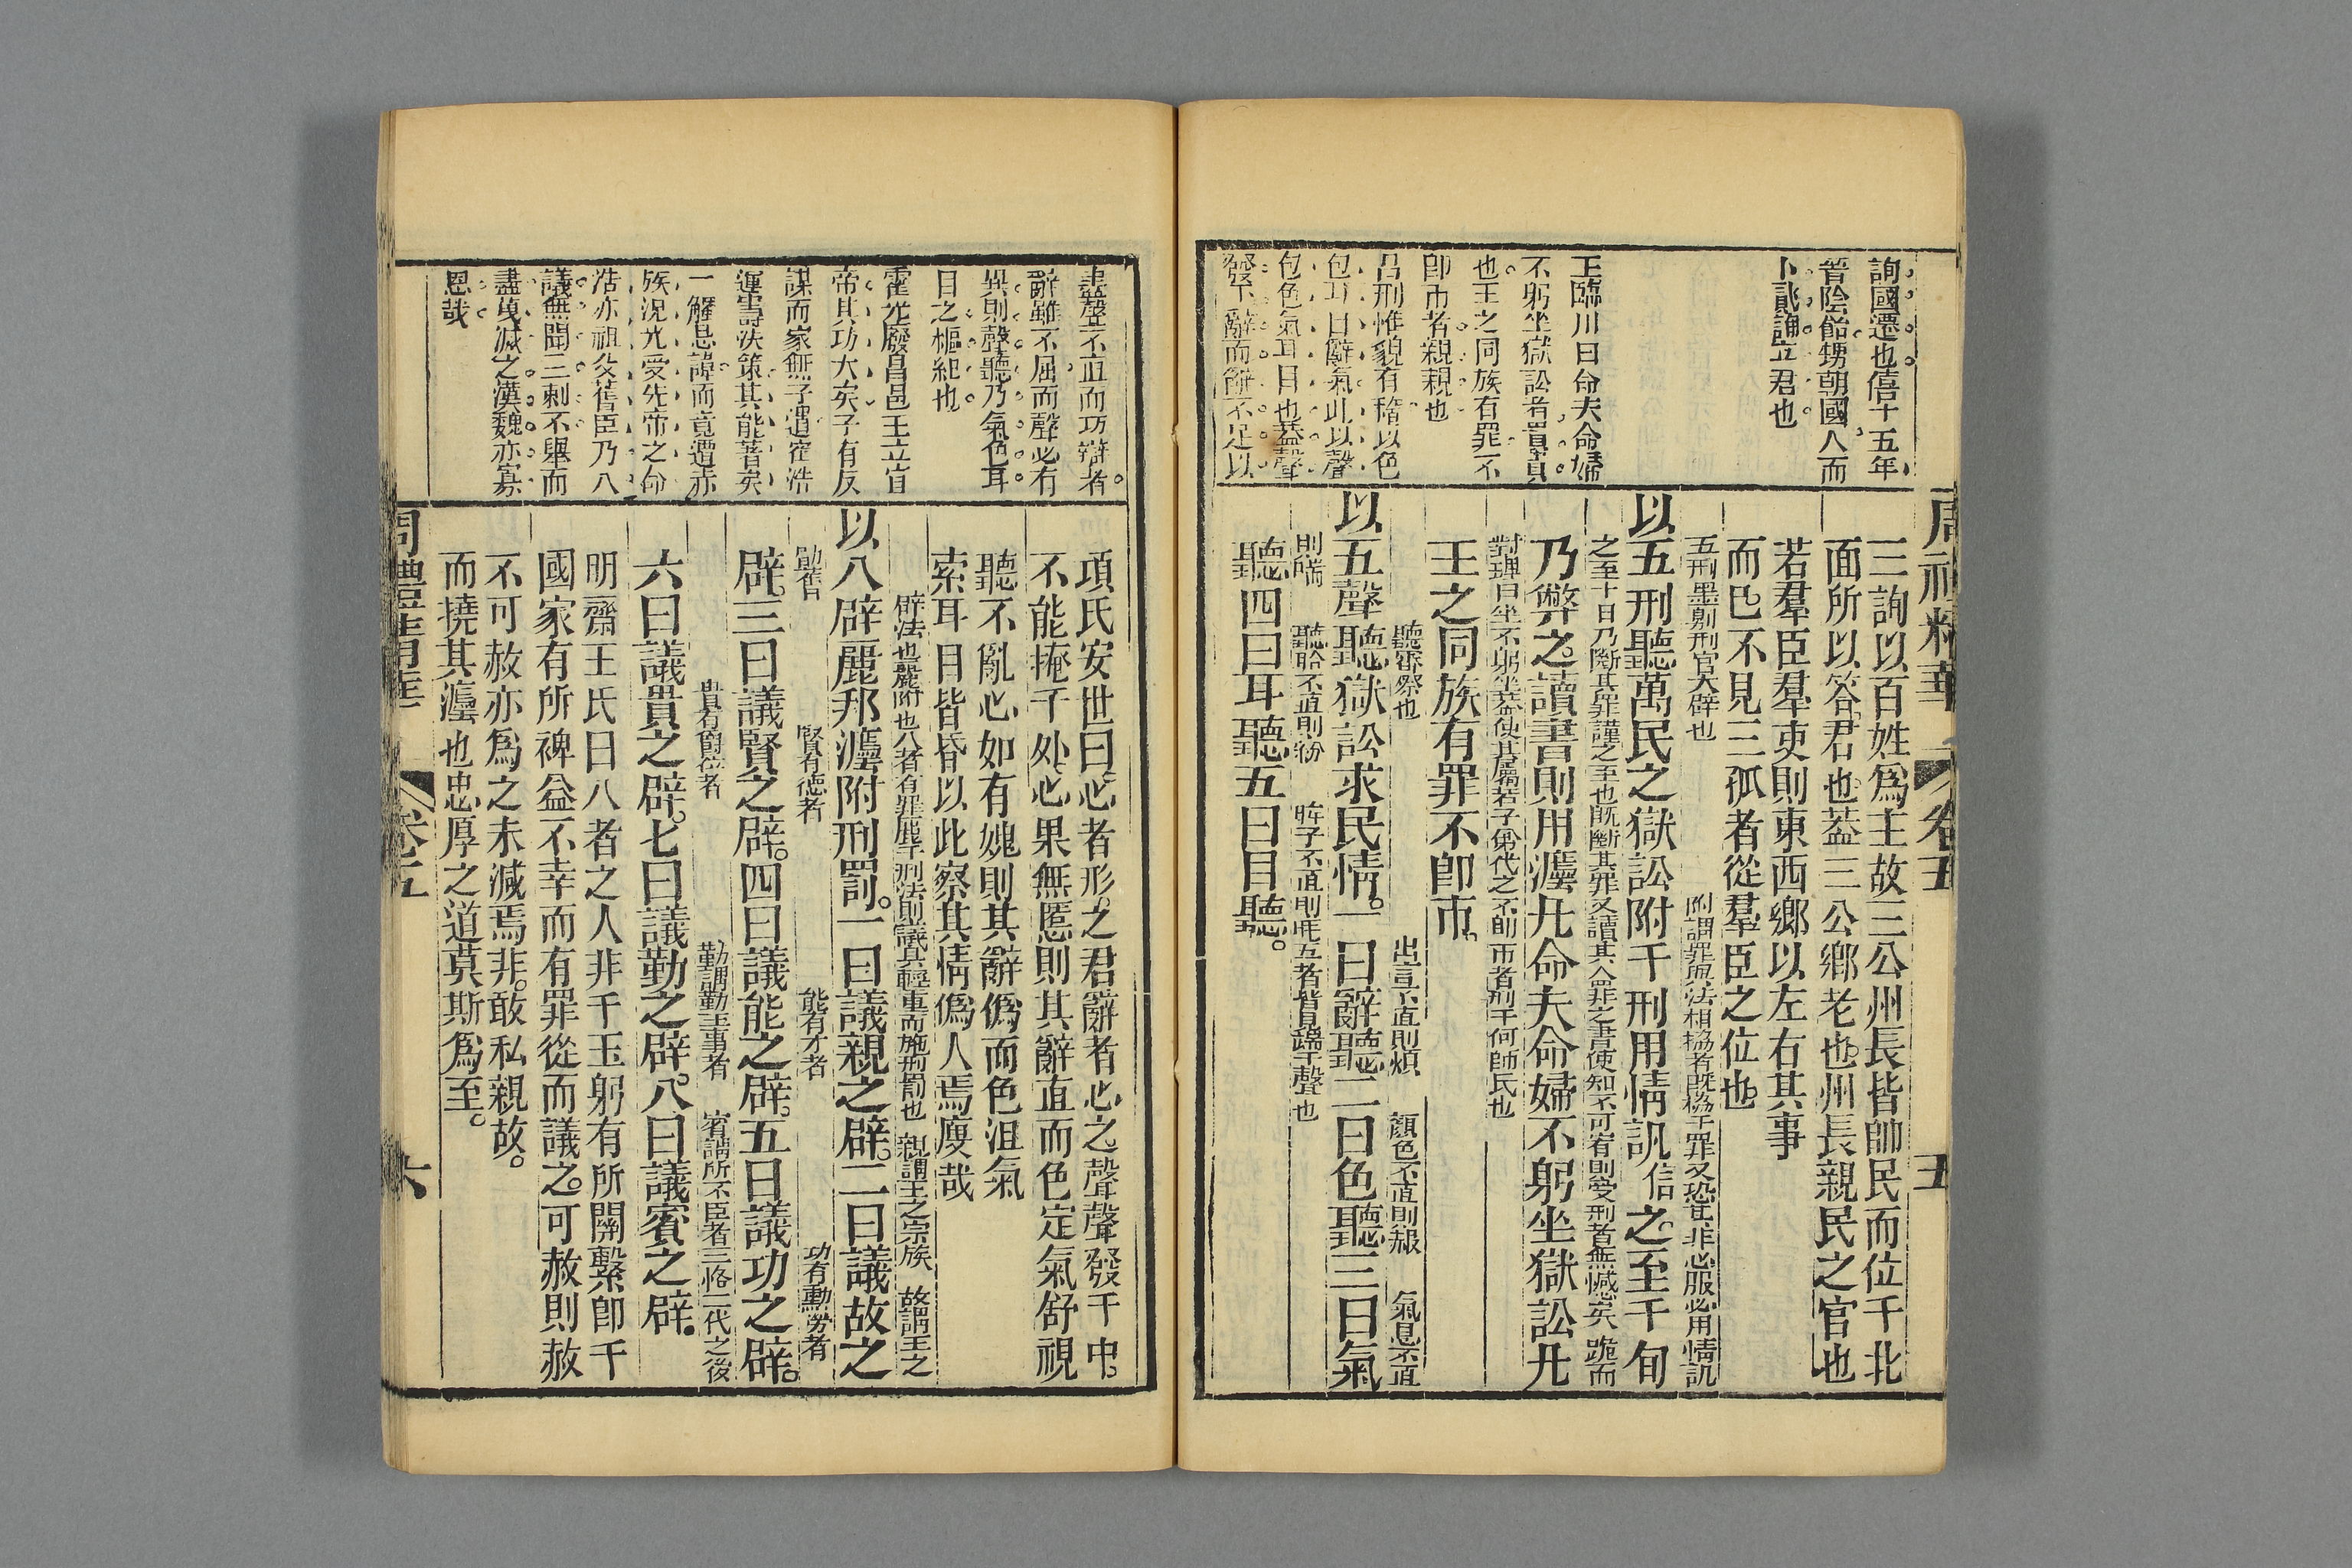 周禮精華
卷五
五
詢國遷也僖十五年
晉陰飴甥朝國人而
卜貳論立君也
王臨川曰命夫命婦
不躬坐獄訟者貴貴
也王之同族有罪不
卽市者親親也
呂刑惟貌有稽以色
包耳目辭氣此以聲
包色氣耳目也蓋聲
發下辭而辭不足以
三詢以百姓爲主故三公州長皆帥民而位于北
面所以答君也蓋三公鄉老也州長親民之官也
若羣臣羣吏則東西鄉以左右其事
而已不見三孤者從羣臣之位也
五刑墨劓刖宮大辟也
附謂罪與法相協者旣協于罪又恐其非心服必用情訊
以五刑聽萬民之獄訟附于刑用情訊之至于旬
之至十日乃斷其罪謹之至也旣斷其罪又讀其
命罪之書使知不可宥則受刑者無憾矣
跪而
乃弊之讀書則用灋凡命夫命婦不躬坐獄訟凡
對理曰坐不躬坐蓋使其屬若子弟代之不卽市者刑于甸師氏也
王之同族有罪不卽市
聽審察也
出言不直則煩
顏色不直則赧
氣息不直
以五聲聽獄訟求民情一曰辭聽二曰色聽三曰氣
則喘
聽聆不直則紛
眸子不直則眊五者皆具端于聲也
聽四曰耳聽五曰目聽
盡聲不直而巧辯者
辭雖不屈而聲必有
異則聲聽乃氣色耳
目之樞紐也
霍光廢昌邑王立宣
帝其功大矣子有反
謀而家無子遺崔浩
運籌決策其能著矣
一觸忌諱而竟遭赤
族況光受先帝之命
浩亦祖父舊臣乃八
議無聞三刺不舉而
盡覆滅之漢魏亦寡
恩哉
項氏安世曰心者形之君辭者心之聲聲發于中
不能掩于外心果無慝則其辭直而色定氣舒視
聽不亂心如有媿則其辭僞而色沮氣
索耳目皆昏以此察其情僞人焉廋哉
辟法也麗附也八者有罪麗于刑法則議其輕重而施刑罰也
親謂王之宗族
故謂王之
以八辟麗邦灋附刑罰一曰議親之辟二曰議故之
勛舊
賢有德者
能有才者
功有勳勞者
辟三曰議賢之辟四曰議能之辟五曰議功之辟
貴有爵位者
勤謂勤王事者
賓謂所不臣者三恪二代之後
六曰議貴之辟七曰議勤之辟八曰議賓之辟
明齋王氏曰八者之人非于王躬有所關繫卽于
國家有所裨益不幸而有罪從而議之可赦則赦
不可赦亦爲之末減焉非敢私親故
而撓其灋也忠厚之道莫斯爲至
周禮精華
卷五
六